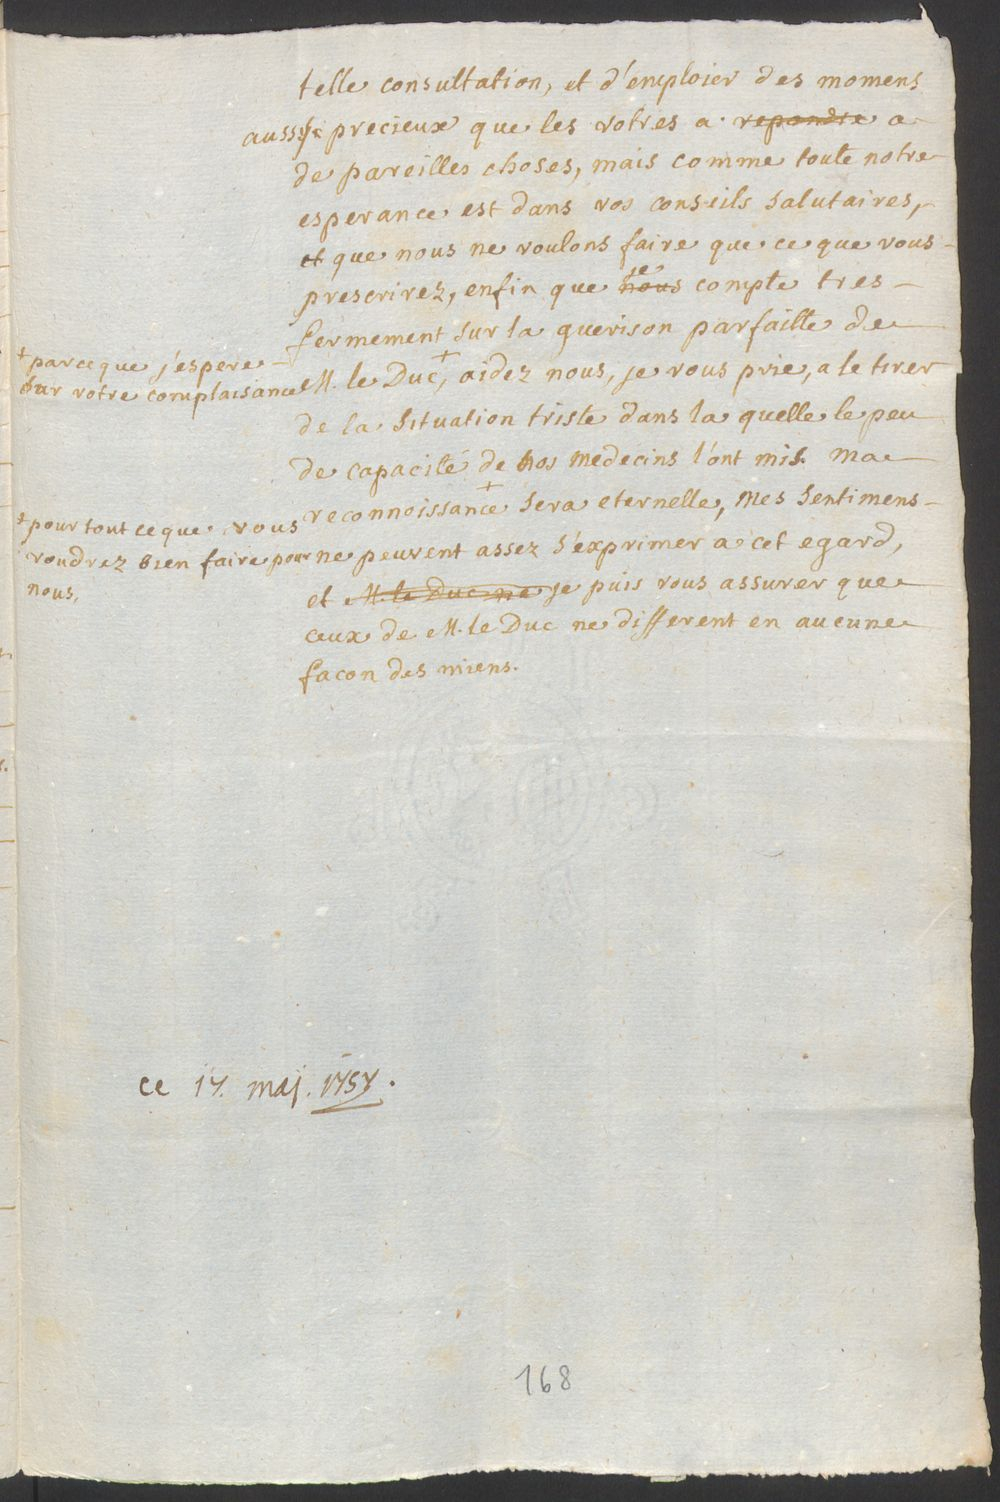 telle consultation, et d'emploier des momens
aussy precieux que les votres a repondre a
de pareilles choses, mais comme toute notre
esperance est dans vos conseils salutaires,
et que nous ne voulons faire que ce que vous
je
prescrirez, enfin que nous compte tres
fermement sur la guerison parfaitte de
M. le Duc,+ aidez nous, je vous prie, a le tirer
+ parceque j'espere
sur votre complaisance
de la situation triste dans la quelle le peu
de capacité de nos medecins l'ont mis. Ma
reconnoissance + sera eternelle, mes sentimens
+ pour tout ce que vous
voudrez bien faire pour
nous,
ne peuvent assez s'exprimer a cet egard,
et M. le Duc ne je puis vous assurer que
ceux de M. le Duc ne different en aucune
facon des miens.
ce 17. maj. 1757.
168